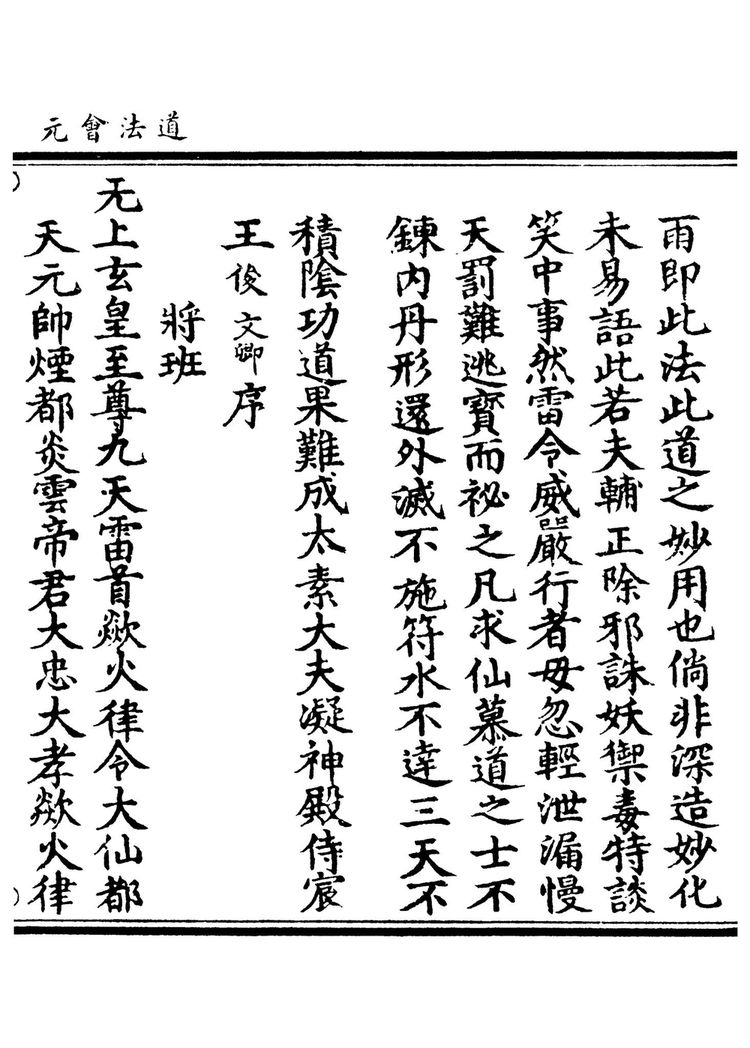 道法會元
雨即此法此道之妙用也倘非深造妙化
未易語此若夫輔正除邪誅妖禦毒特談
笑中事然雷令威嚴行者毋忽輕泄漏慢
天罰難逃寶而祕之凡求仙慕道之士不
鍊內丹形還外滅不施符水不達三天不
積陰功道果難成太素大夫凝神殿侍宸
王俊文卿序
將班
无上玄皇至尊九天雷首歘火律令大仙都
天元帥煙都炎雲帝君大忠大孝歘火律